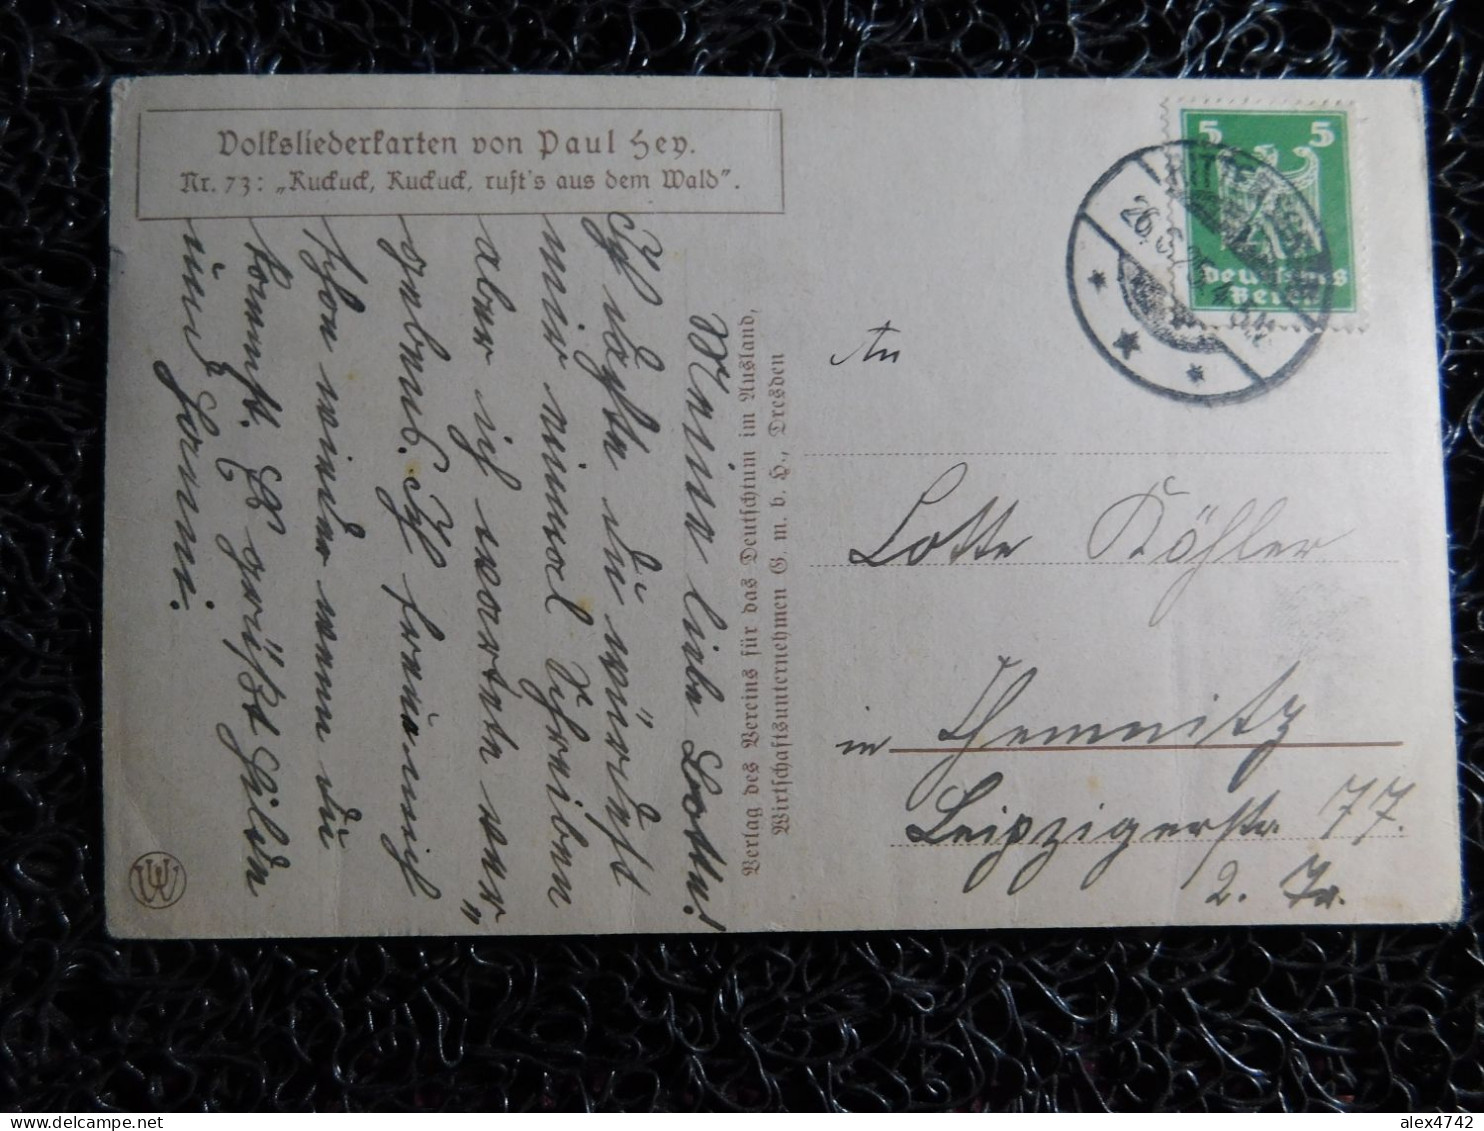 Volksliederkarten von Paul Hey.
Nr. 73: „Kuckuck, Kuckuck, ruft's aus dem Wald".
Meine liebe Lotte!
Ich dachte du würdest
mir einmal Schreiben
aber ich wartete ver„
gebens. Ich freue mich
schon wieder wenn du
kommst. Es grüßt Hilde
und
Verlag des Vereins für das Deutschtum im Ausland,
Wirtschaftsunternehmen G. m. b. H., Dresden
5 5
Deutsches
Reich
26.
An
Lotte Köhler
in Chemnitz
Leipzigerstr. 77.
2. Tr.
alex4742